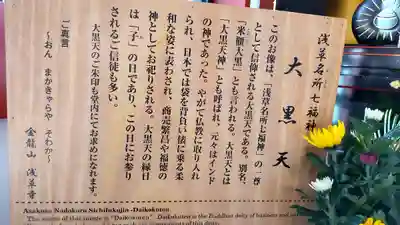 浅草名所七福神
大黒天
このお像は、「浅草名所七福神」の一尊
として信仰される大黒天である。別名、
「米櫃大黒」とも言われる。大黒天とは
「大黒天神」とも呼ばれ、元々はインド
の神であった。やがて仏教に取り入れ
られ、日本では袋を背負い俵に乗る柔
和な姿に表わされ、商売繁昌や福徳の
神としてお祀りされる。大黒天の縁日
は「子」の日であり、この日にお参り
されるご信徒も多い。
大黒天のご朱印も堂内にてお求めになれます。
ご真言
～おん まかきゃらや そわか～
金龍山 浅草寺
Asakusa Nadokoro Sichifukujin -Daikokuten-
The name of this statue is "Daikokuten". Daikokuten is the Buddhist deity of business and